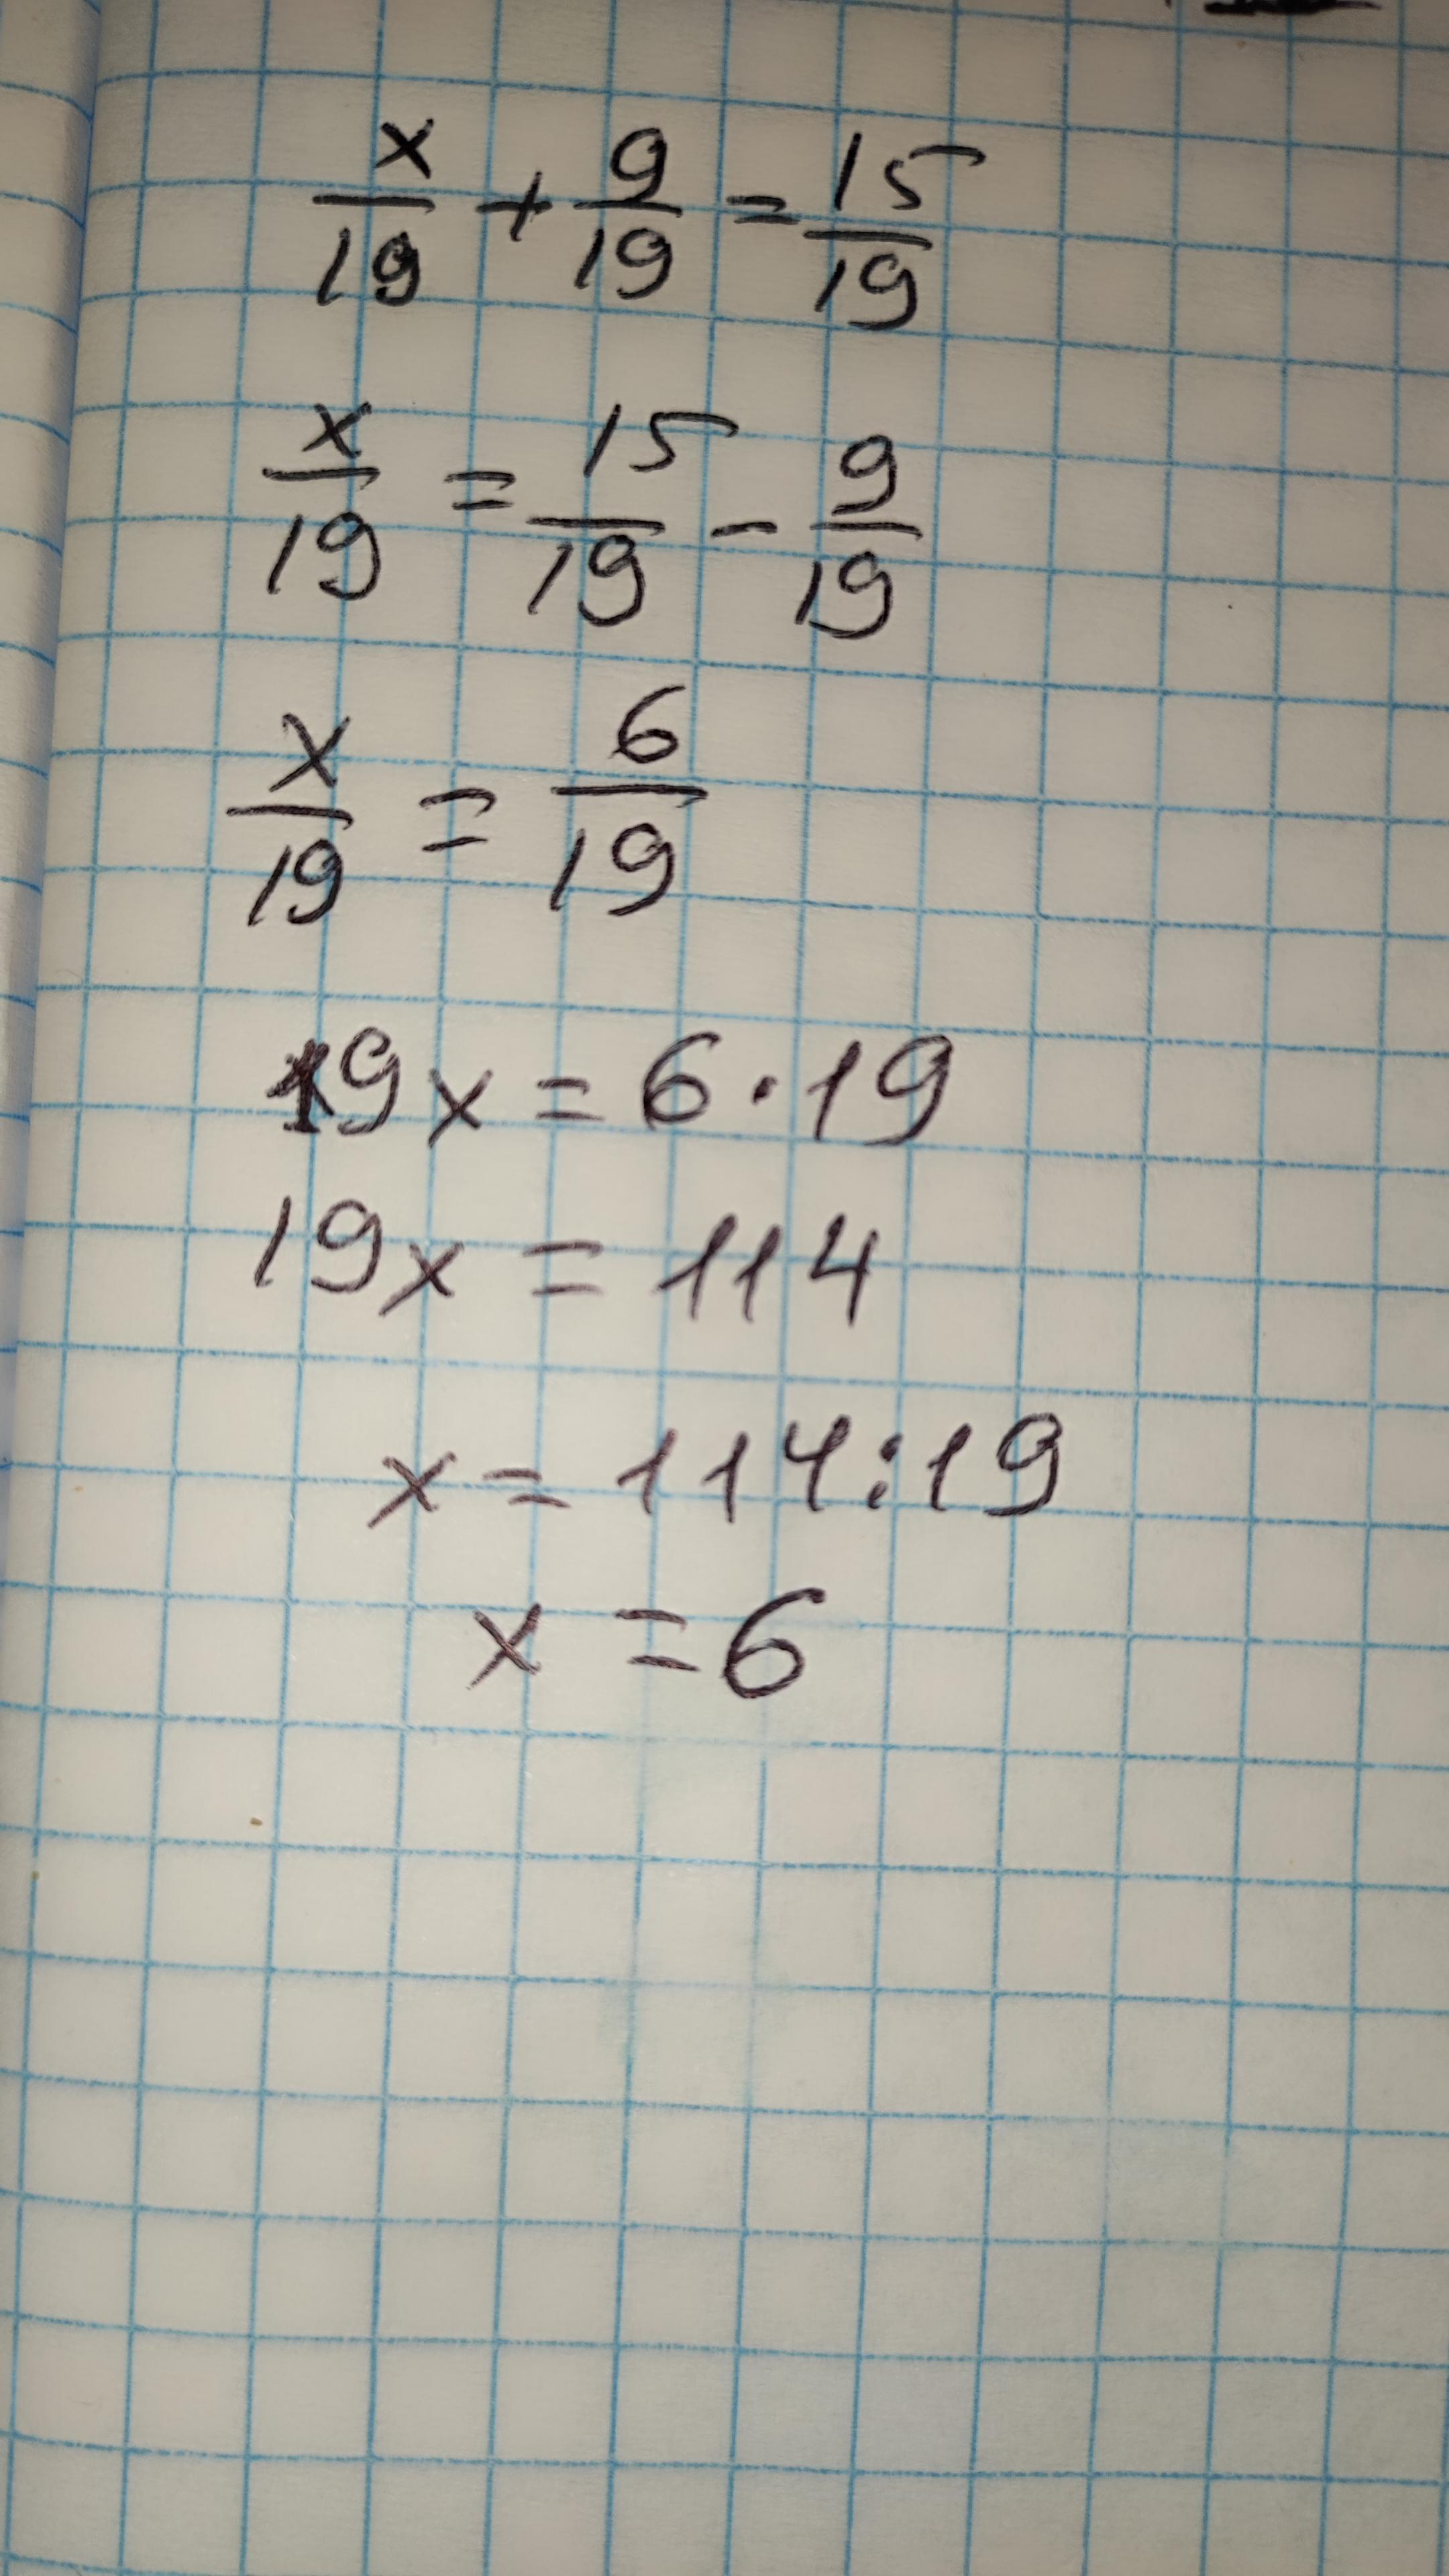 x/19 + 9/19 = 15/19
x/19 = 15/19 - 9/19
x/19 = 6/19
19x = 6·19
19x = 114
x = 114:19
x = 6